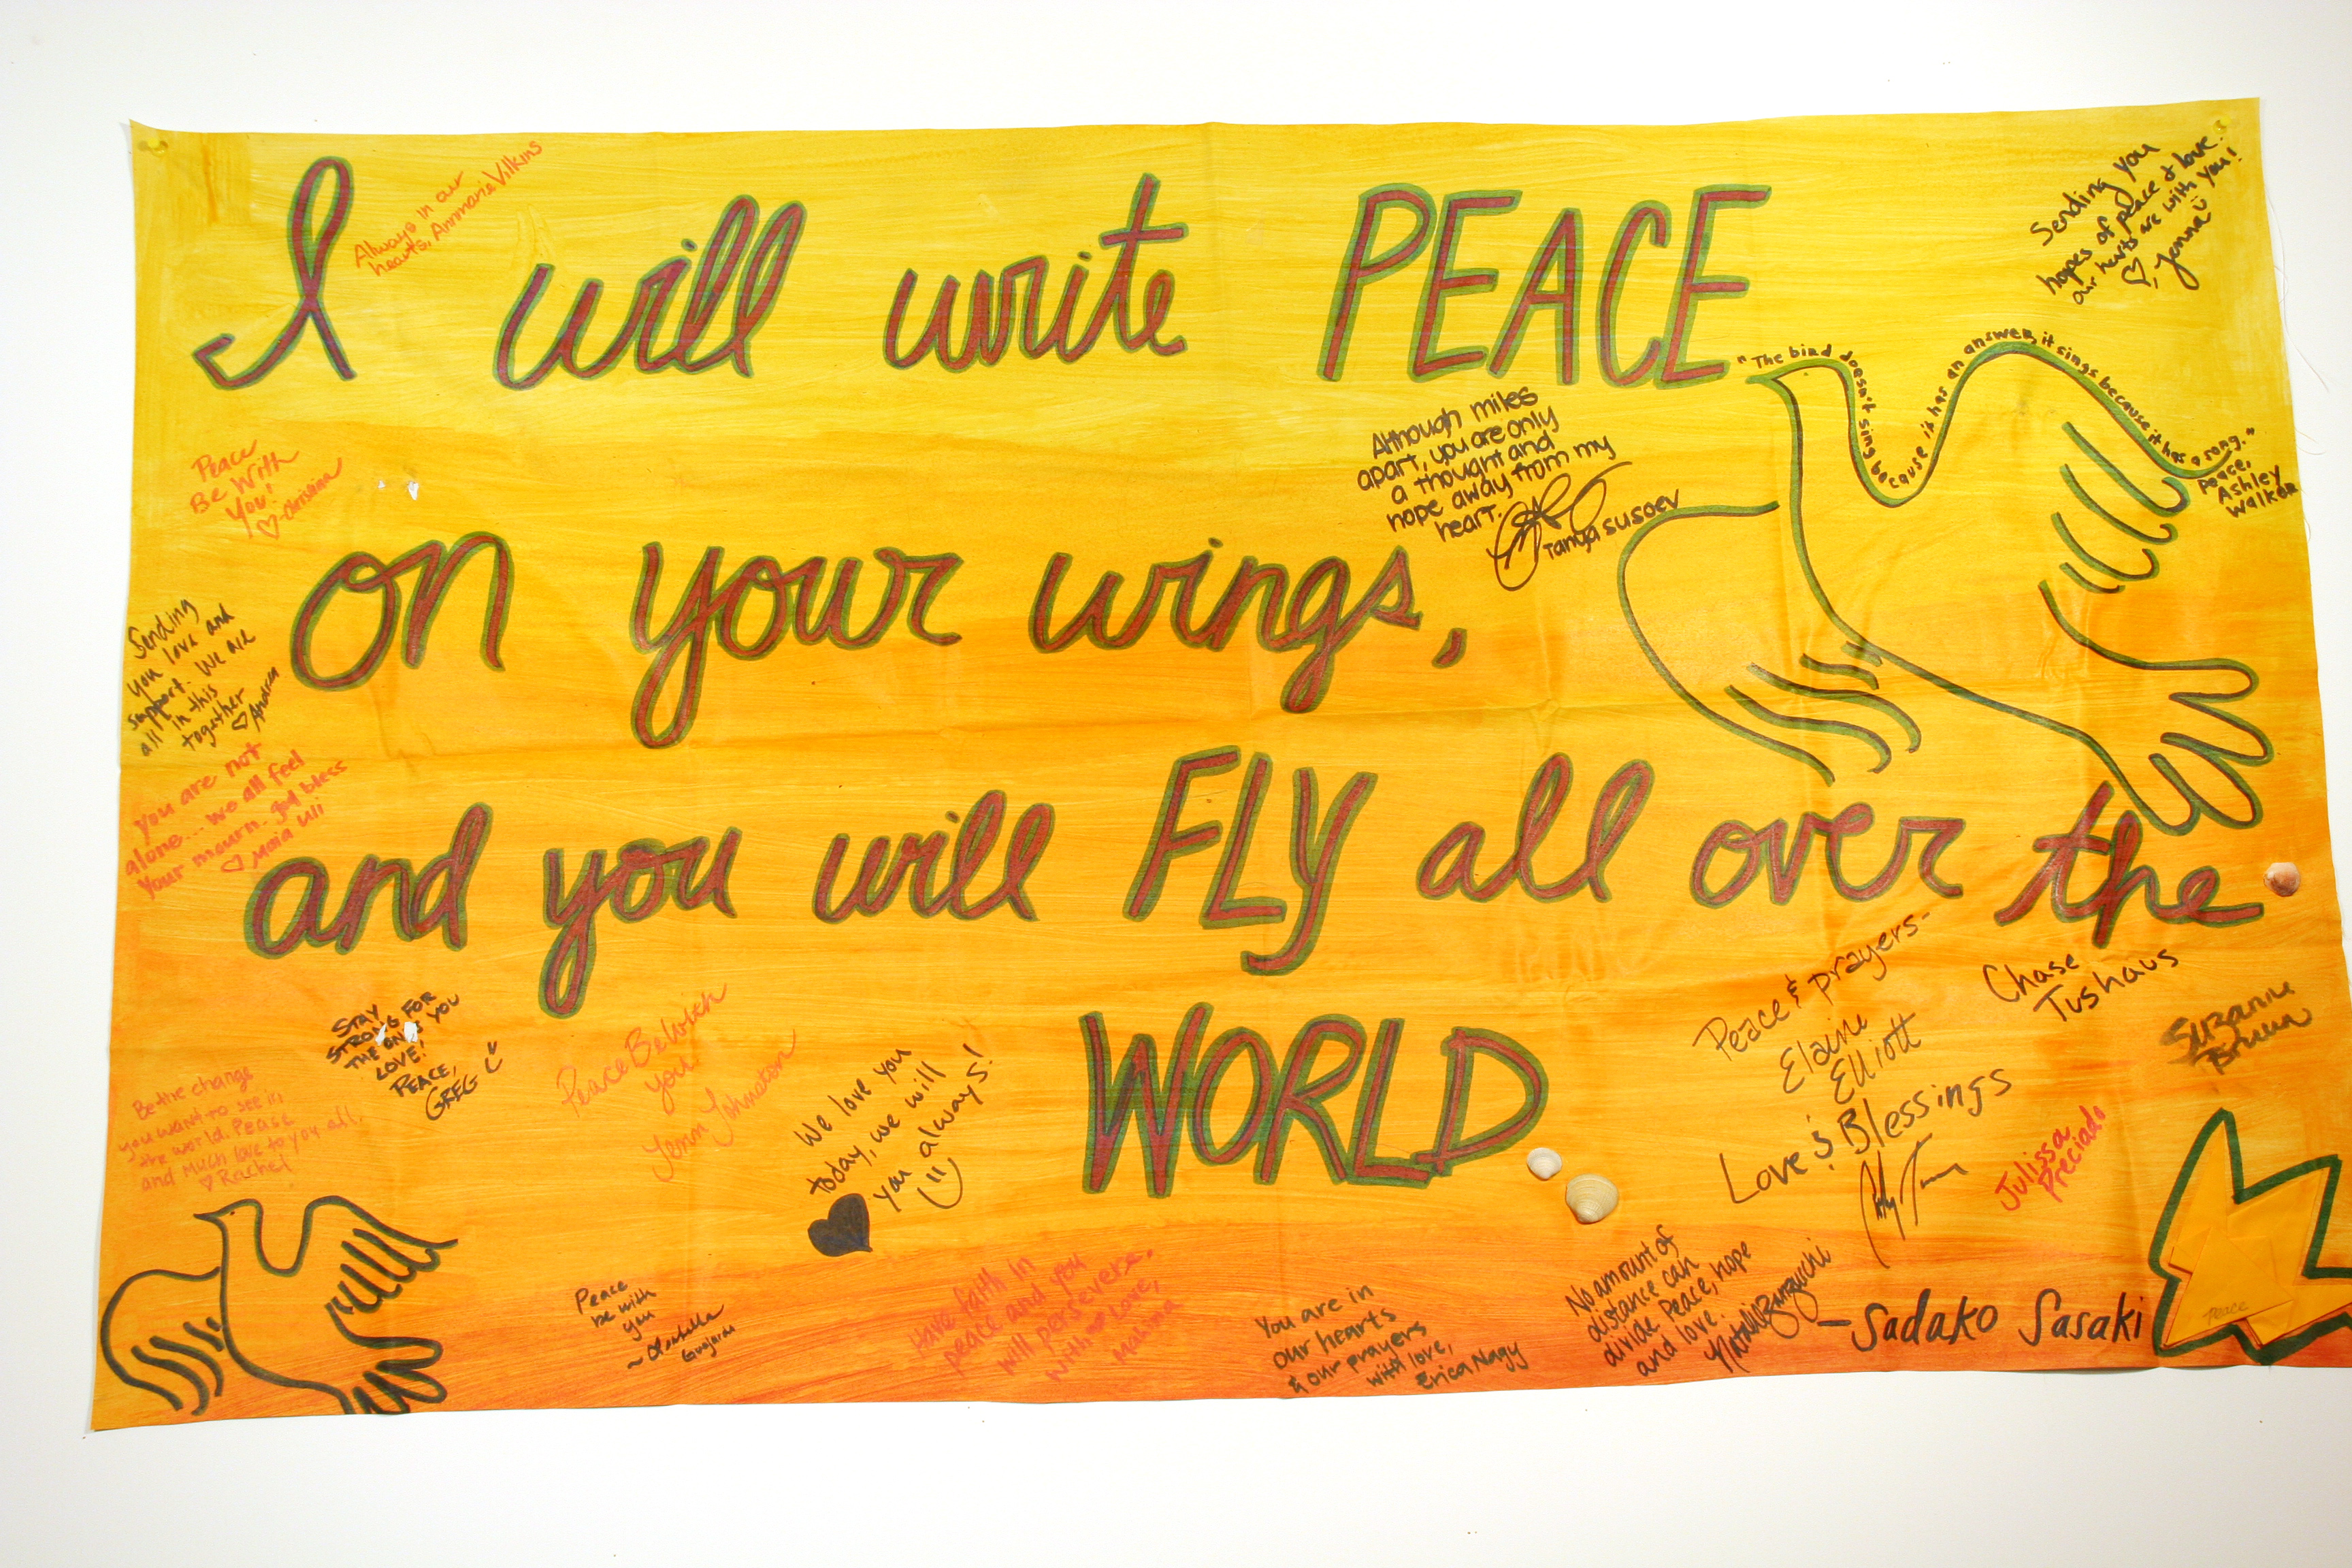 I will write PEACE
on your wings,
and you will FLY all over the
WORLD.
-Sadako Sasaki
Always in our
hearts, Annmarie Vilkins
Sending you
hopes of peace & love.
our hearts are with you!
♡, Jenna
"The bird doesn't sing because it has an answer, it sings because it has a song."
Peace,
Ashley
Walker
Although miles
apart, you are only
a thought and
hope away from my
heart.
Tanya Susoev
Peace
Be With
You!
♡-Christina
Sending
you love and
support. We are
all in this
together
♡ Andrea
you are not
alone... we all feel
your mourn. God bless
♡ Maia
STAY
STRONG FOR
THE ONES YOU
LOVE!
PEACE,
GREG
Peace Be With
you
Jenn Johnston
Be the change
you want to see in
the world. Pease
and Much love to you all.
♡ Rachel
We love you
today, we will
you always!
Peace
be with
you
Have faith in
peace and you
will persevere.
with love,
Mahina
You are in
our hearts
& our prayers
with love,
Erica Nagy
No amount of
distance can
divide Peace, hope
and love.
Peace & prayers-
Elaine
Elliott
Love & Blessings
Chase
Tushaus
Suzanne
Julissa
Preciado
Peace